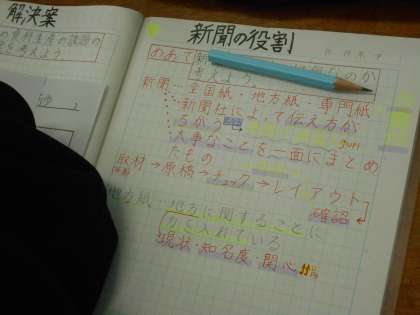 解決案
の資料生産の課題の
を考えよう
新聞の役割
めあて 新
考えよう のか
新聞…全国紙・地方紙・専門紙
新聞社によって伝え方が
ちがう
大事なことを一面にまとめ
たもの
取材→原稿→チェック→レイアウト
確認
地方紙…地方に関することに
力を入れている
現状・知名度・関心